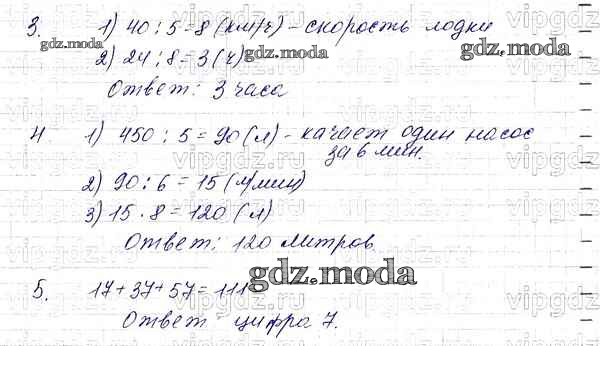 3. 1) 40 : 5 = 8 (км/ч) - скорость лодки
2) 24 : 8 = 3 (ч)
Ответ: 3 часа
4 1) 450 : 5 = 90 (л) - качает один насос
за 6 мин.
2) 90 : 6 = 15 (л/мин)
3) 15 . 8 = 120 (л)
Ответ: 120 литров
gdz.moda
5. 17 + 37 + 57 = 111
Ответ цифра 7.